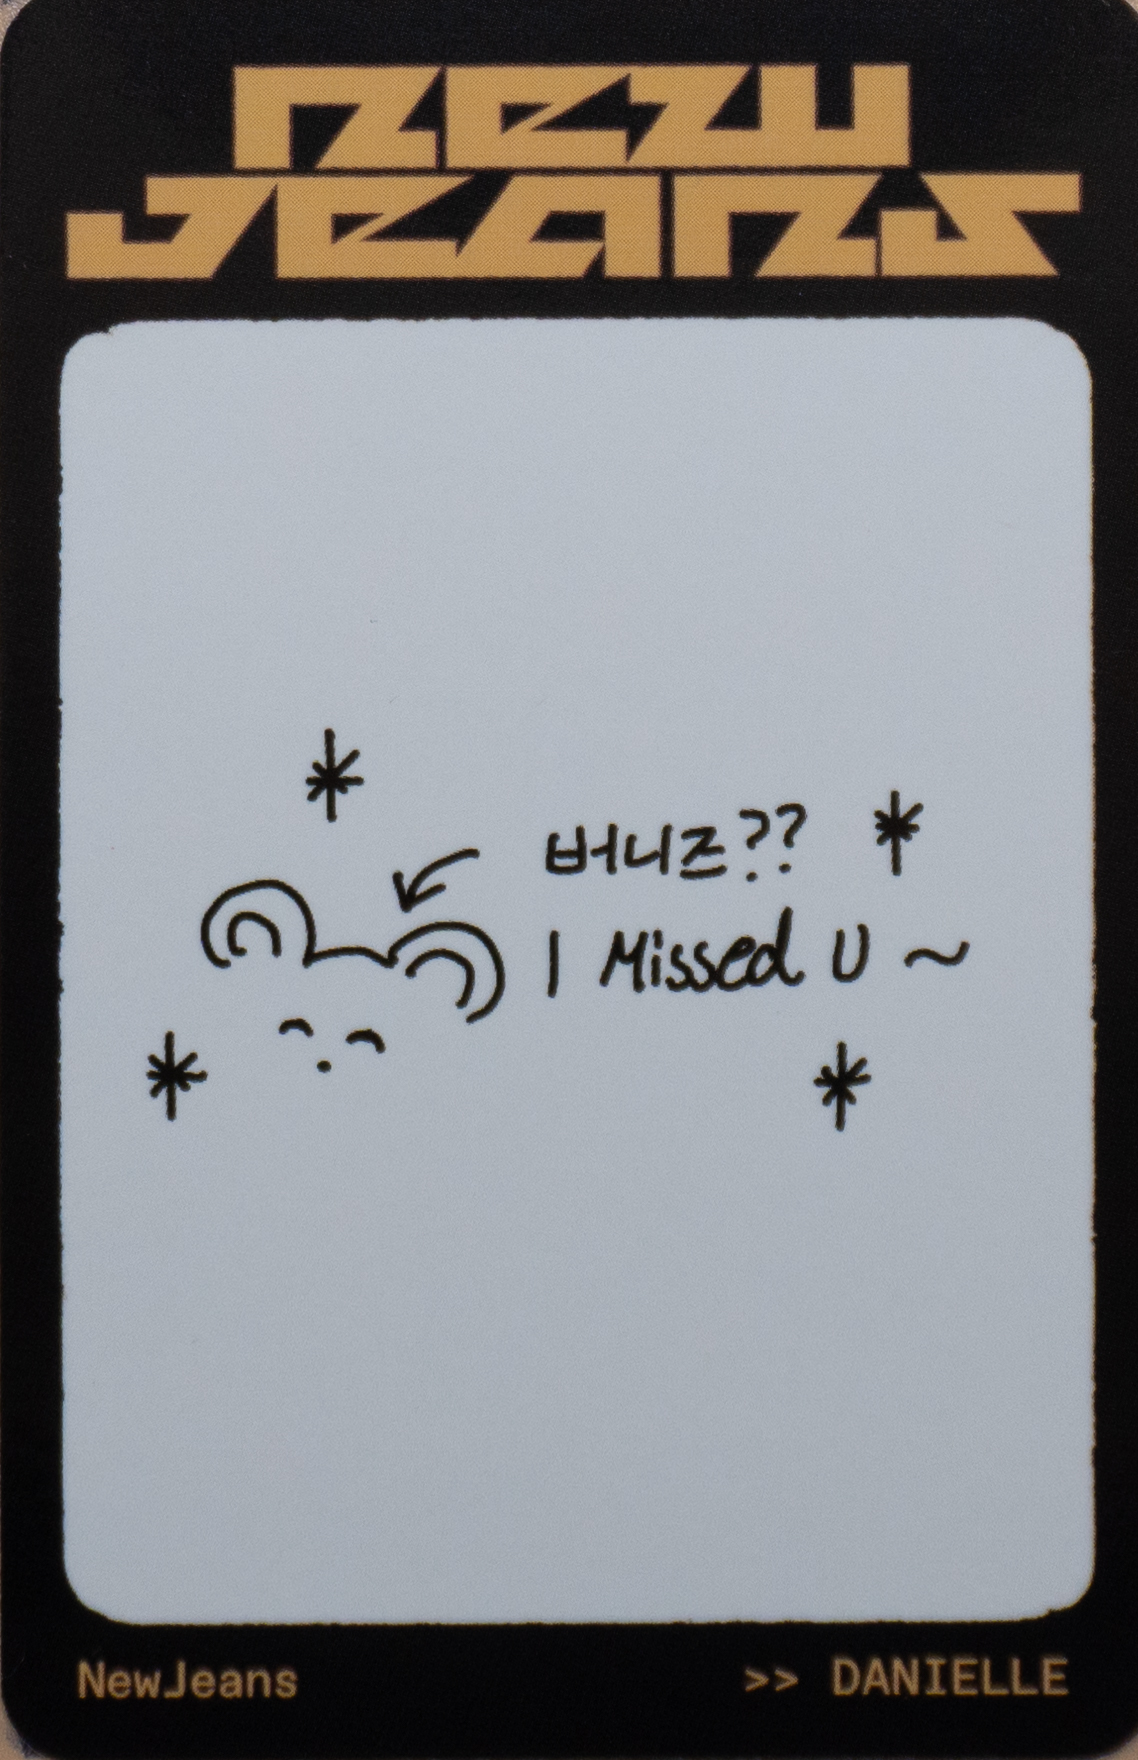 new
jeans
버니즈??
I Missed U ~
NewJeans
>> DANIELLE